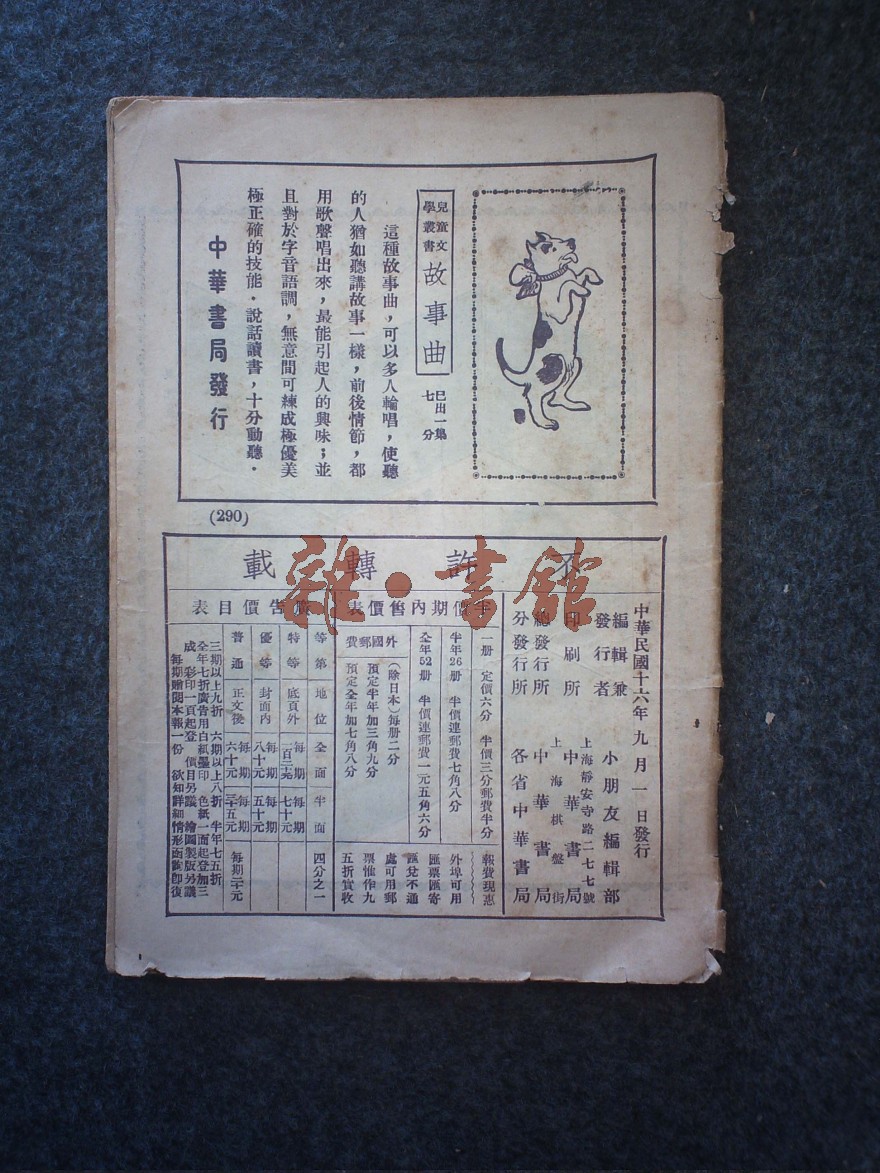 兒童文
學叢書
故事曲
已出一集
七分
這種故事曲，可以多人輪唱，使聽
的人猶如聽講故事一樣，前後情節，都
用歌聲唱出來，最能引起人的興味；並
且對於字音語調，無意間可練成極優美
極正確的技能．說話讀書，十分動聽．
中華書局發行
(290)
不許轉載
雜·書館
中華民國十六年九月一日發行
編輯兼發行者 小朋友編輯部
印刷所 上海靜安寺路二七七號 中華書局
總發行所 上海棋盤街 中華書局
分發行所 各省中華書局
半價期內售價表
一册 定價六分 半價三分郵費半分
半年26册 半價連郵費七角八分
全年52册 半價連郵費一元五角六分
外國郵費
（除日本）每册二分
預定半年加三角九分
預定全年加七角八分
報費現惠
外埠可用
匯票匯寄
匯兌不通
處可用郵
票惟作九
五折實收
廣告價目表
等第 地位 全面 半面 四分之一
特等 底頁外 每期 每期七十元
優等 封面內 每期八十元 每期五十元
普通 正文後 每期六十元 每期三十五元 每期二十元
三期以上九折 六期以上八折 半年七五折
全年七折廣告用白紙墨印 色紙一面起登加三
成 彩印一頁起登 價目另議 繪圖製版另議
每期贈閱本報一份 欲知詳細情形函詢即復